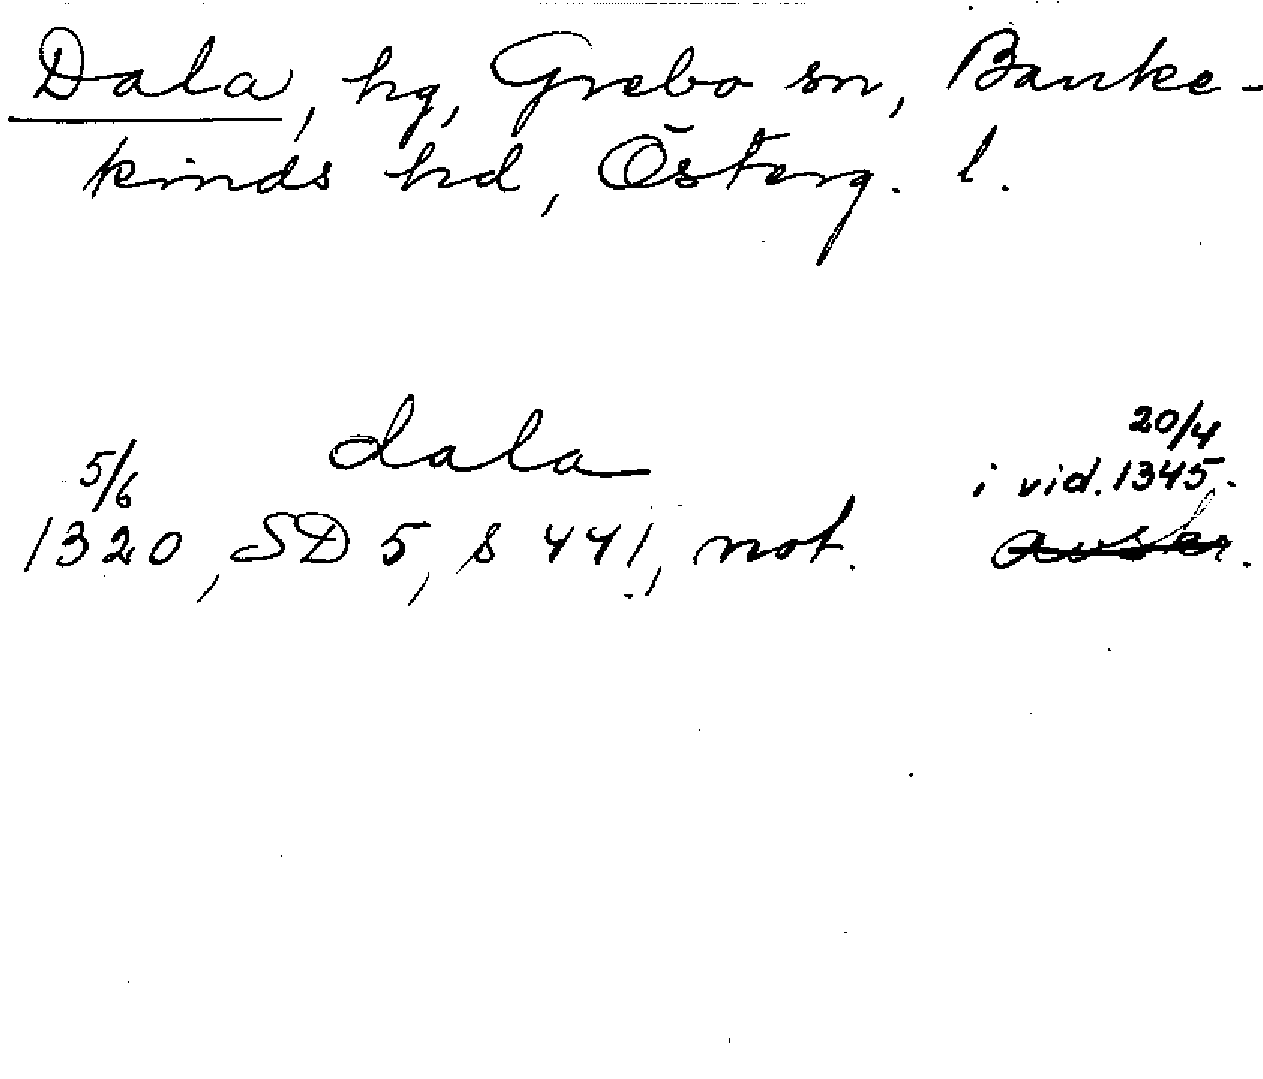 Dala, hg, Grebo sn, Banke-
kinds hd, Österg. l.
dala
20/4
5/6 i vid. 1345.
1320, SD 5, s 441, not. avskr.